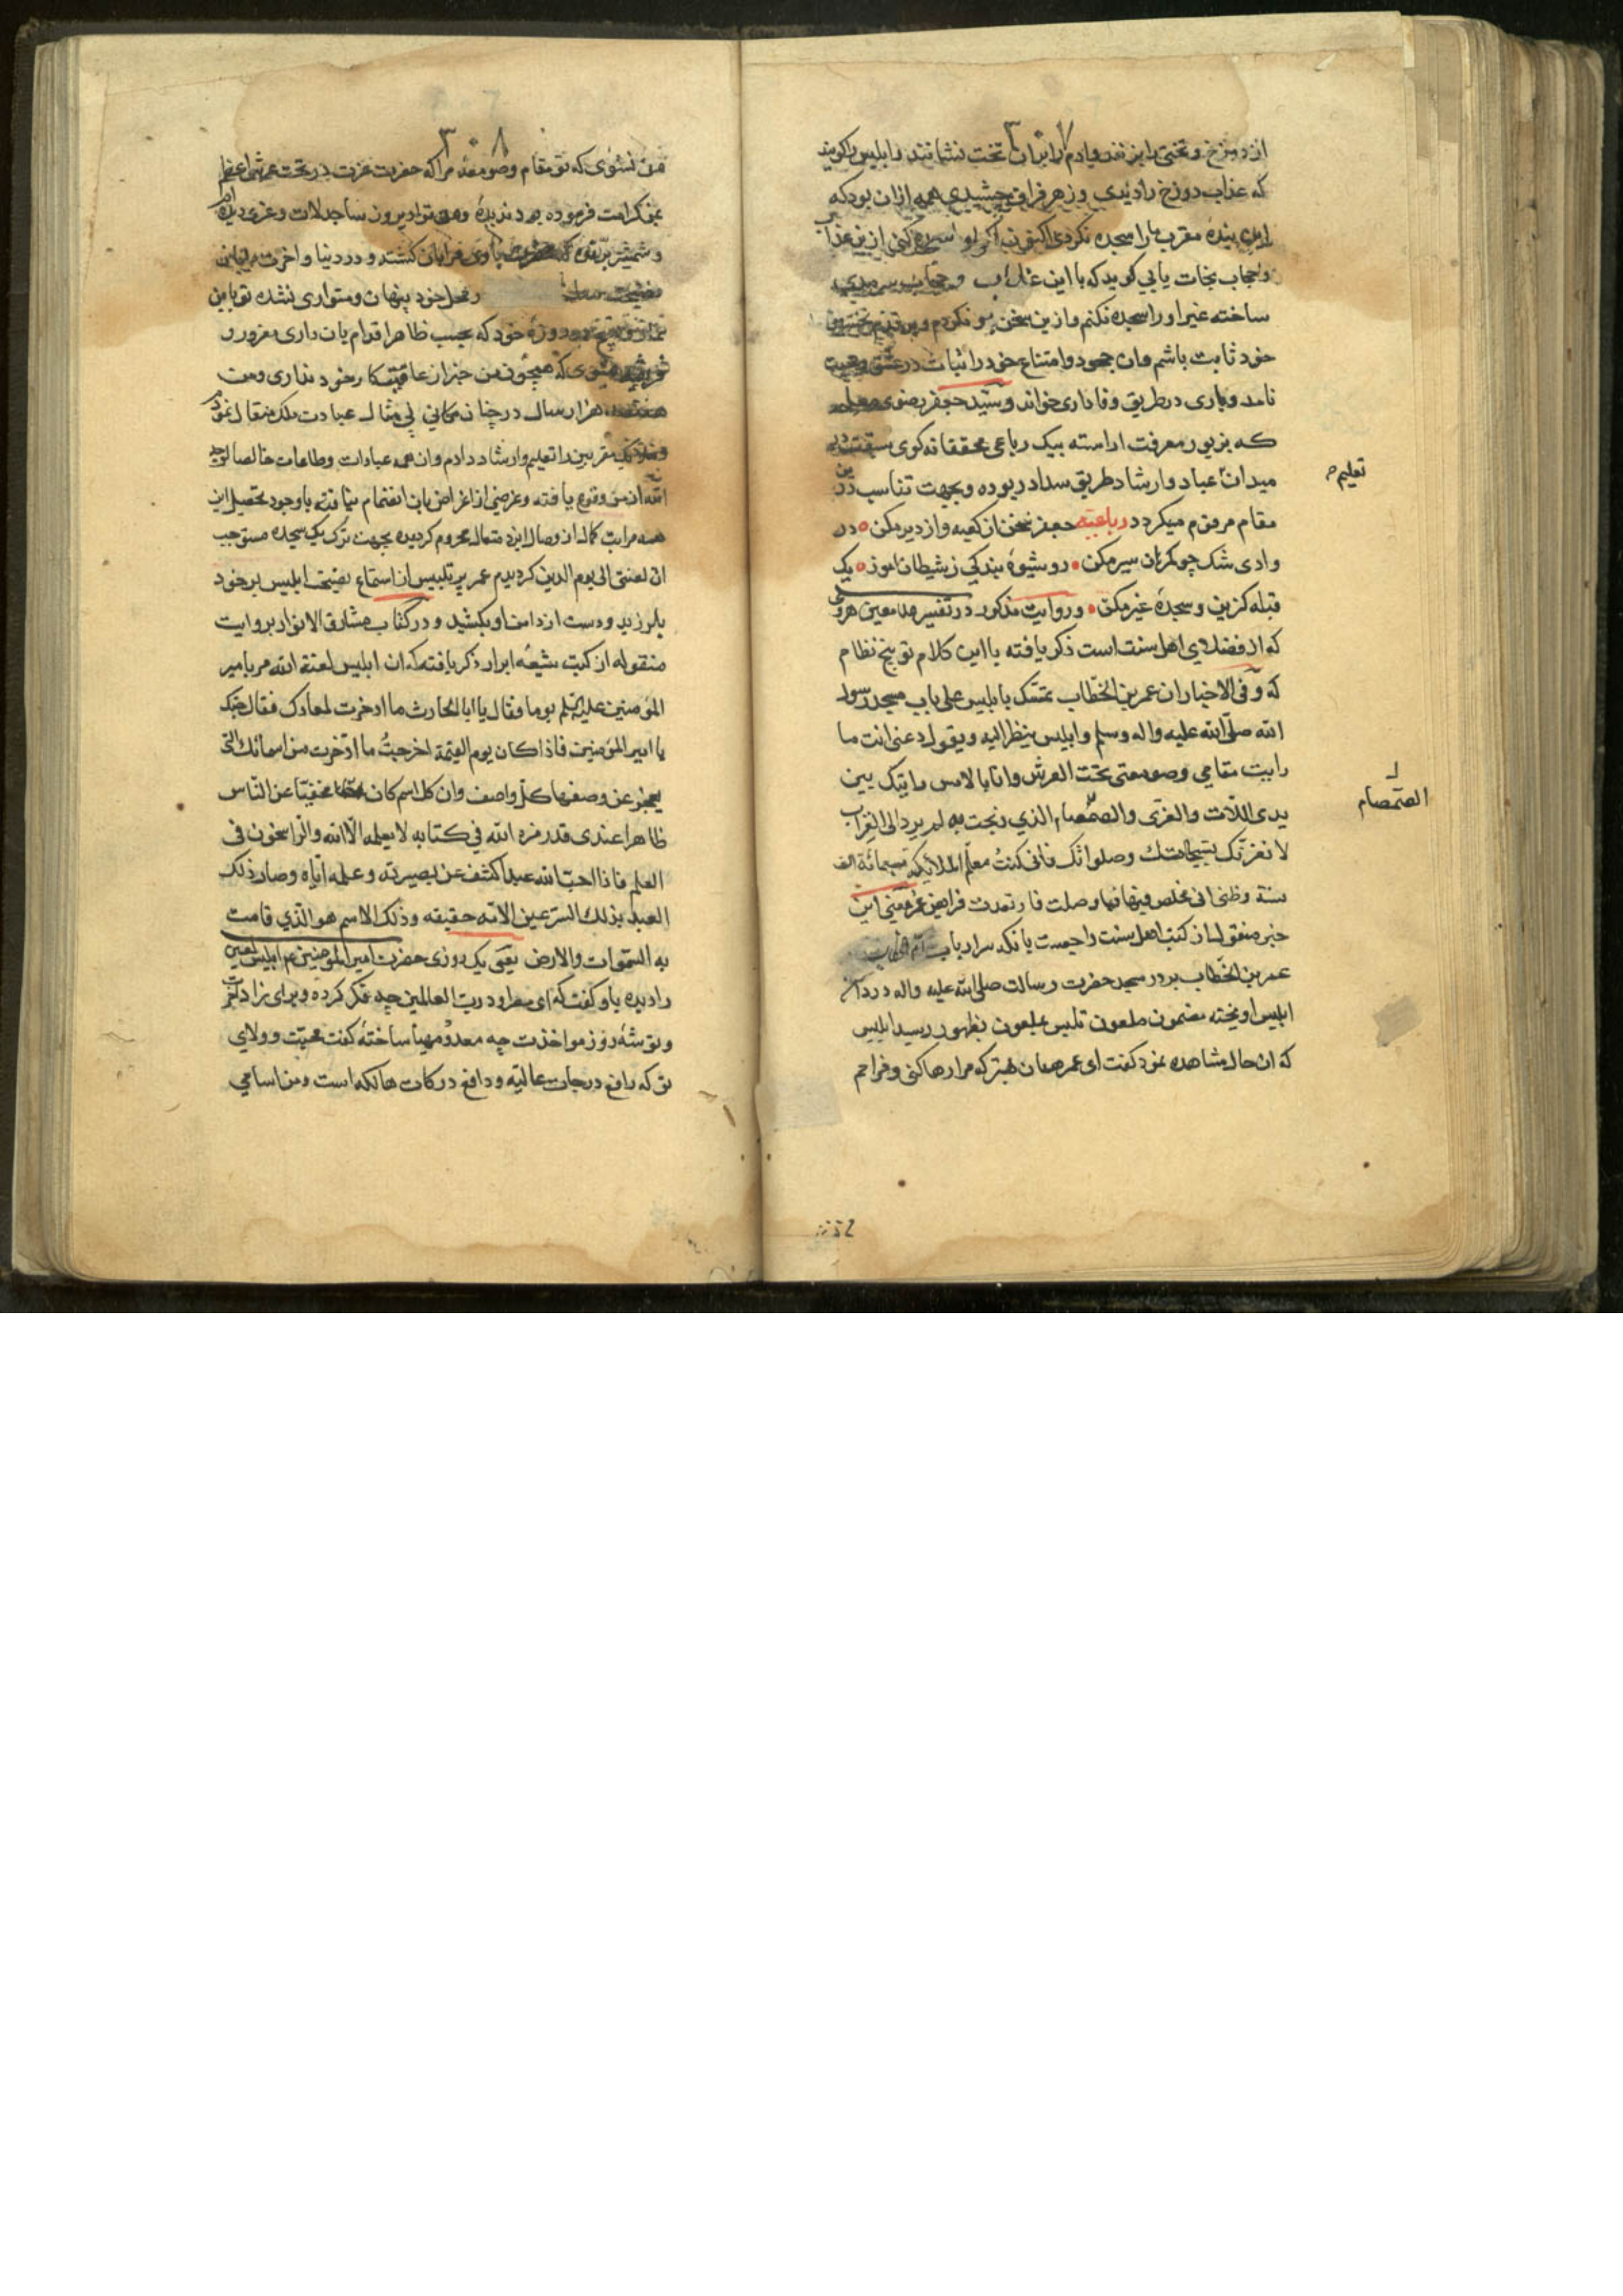 ۳۰۷
از دوزخ و تختی را بزنند و ادم را بران تخت نشانند و ابلیس را کویند
که عذاب دوزخ را دیدی و زهر فراق چشیدی همه ازان بود که
این بنده مقرب ما را سجده نکردی اکنون اکر او را سجده کنی ازین عذاب
و حجاب نجات یابی کوید که با این عذاب و حجاب
ساخته غیر او را سجده نکنم و ازین سخن
خود ثابت باشم وان جحود و امتناع خود را اثبات در عشق و محبت
نامد و یاری در طریق وفاداری خواند و سید جعفر رضوی
که بزیور معرفت اراسته بیک رباعی محققانه کوی سبقت در
میدان عباد و ارشاد طریق سداد ربوده و بجهت تناسب درین
تعلیم
مقام مرقوم میکردد رباعیه جعفر سخن از کعبه و از دیر مکن در
وادی شک چو کمرهان سیر مکن رو شیوهٔ بندکی ز شیطان اموز یک
قبله کزین و سجدهٔ غیر مکن و روایت مذکور در تفسیر ملا معین هروی
که از فضلای اهل سنت است ذکر یافته با این کلام توبیخ نظام
که و فی الاخبار ان عمر بن الخطّاب تمسّک بابلیس علی باب مسجد رسول
الله صلّی الله علیه واله وسلم وابلیس ینظر الیه ویقول دعنی انت ما
رایت مقامی وصومعتی تحت العرش وانا بالامس رایتک بین
یدی اللّات والعزّی والصمصام الذی نجت به لم یرد الی القراب
الصّمصام
لا تغرنّک تسبیحاتک وصلواتک فانی کنتُ معلّم الملائکه تسبعمائة الف
سنة وظنی انی مخلص فیها فما وصلت
خبر منقول از کتب اهل سنت
عمر بن الخطّاب بر در مسجد حضرت رسالت صلی الله علیه واله در
ابلیس اویخته مضمون ملعون تلبس بملعون بظهور رسید ابلیس
که ان حال مشاهده نمود کفت ای عمر همان بهتر که مرا رها کنی و مزاحم
۳۰۸
من نشوی که تو مقام و صومعهٔ مرا که حضرت عزت در تحت عرش اعظم
بمن کرامت فرموده بود ندیدهٔ ومن ترا دیروز ساجد لات و عزی دیده ام
و شمشیر کشته و در دنیا و اخرت
در محل خود پنهان و متواری نشده تو باین
نماز و روزهٔ خود که بحسب ظاهر اقدام بان داری مغرور و
که همچون من خبر از عاقبت کار خود نداری ومن
هفتصد هزار سال در چنان مکانی بی مثال عبادت ملک متعال نموده
و ملائکه مقربین را تعلیم و ارشاد دادم وان همه عبادات و طاعات خالصا لوجه
الله از من وقوع یافته و غرضی از اغراض بان انضمام نیافته و باوجود تحصیل این
همه مراتب کمال از وصال ایزد متعال محروم کردیده بجهت ترک یک سجده مستوجب
ان لعنتی الی یوم الدین کردیدم عمر پر تلبیس از استماع نصیحت ابلیس بر خود
بلرزید و دست از دامن او بکشید و در کتاب مشارق الانوار بروایت
منقوله از کتب شیعهٔ ابرار ذکر یافته که ان ابلیس لعنة الله مر بامیر
المؤمنین علیه السّلم یوما فقال یا ابا الحارث ما ادخرت لمعادک فقال حبّک
یا امیر المؤمنین فاذا کان یوم القیمة اخرجتُ ما ادّخرت من اسمائک التی
یعجز عن وصفها کلّ واصف وان کل اسم کان مخفیّا عن النّاس
ظاهرا عندی قد رمزه الله فی کتابه لا یعلمه الّا الله والرّاسخون فی
العلم فاذا احبّ الله عبدا کشف عن بصیرته وعلمه ایّاه وصار ذلک
العبد بذلک السّر عین الامّه حقیقه وذلک الاسم هو الّذی قامت
به السّموات والارض یعنی یک روزی حضرت امیر المؤمنین ع م ابلیس لعین
را دیده باو کفت که ای مطرود ربّ العالمین چه فکر کرده و برای زاد اخرت
و توشهٔ روز مواخذت چه معد و مهیا ساختهٔ کفت محبّت و ولای
تو که رافع درجات عالیّه و دافع درکات هالکه است و من اسامی